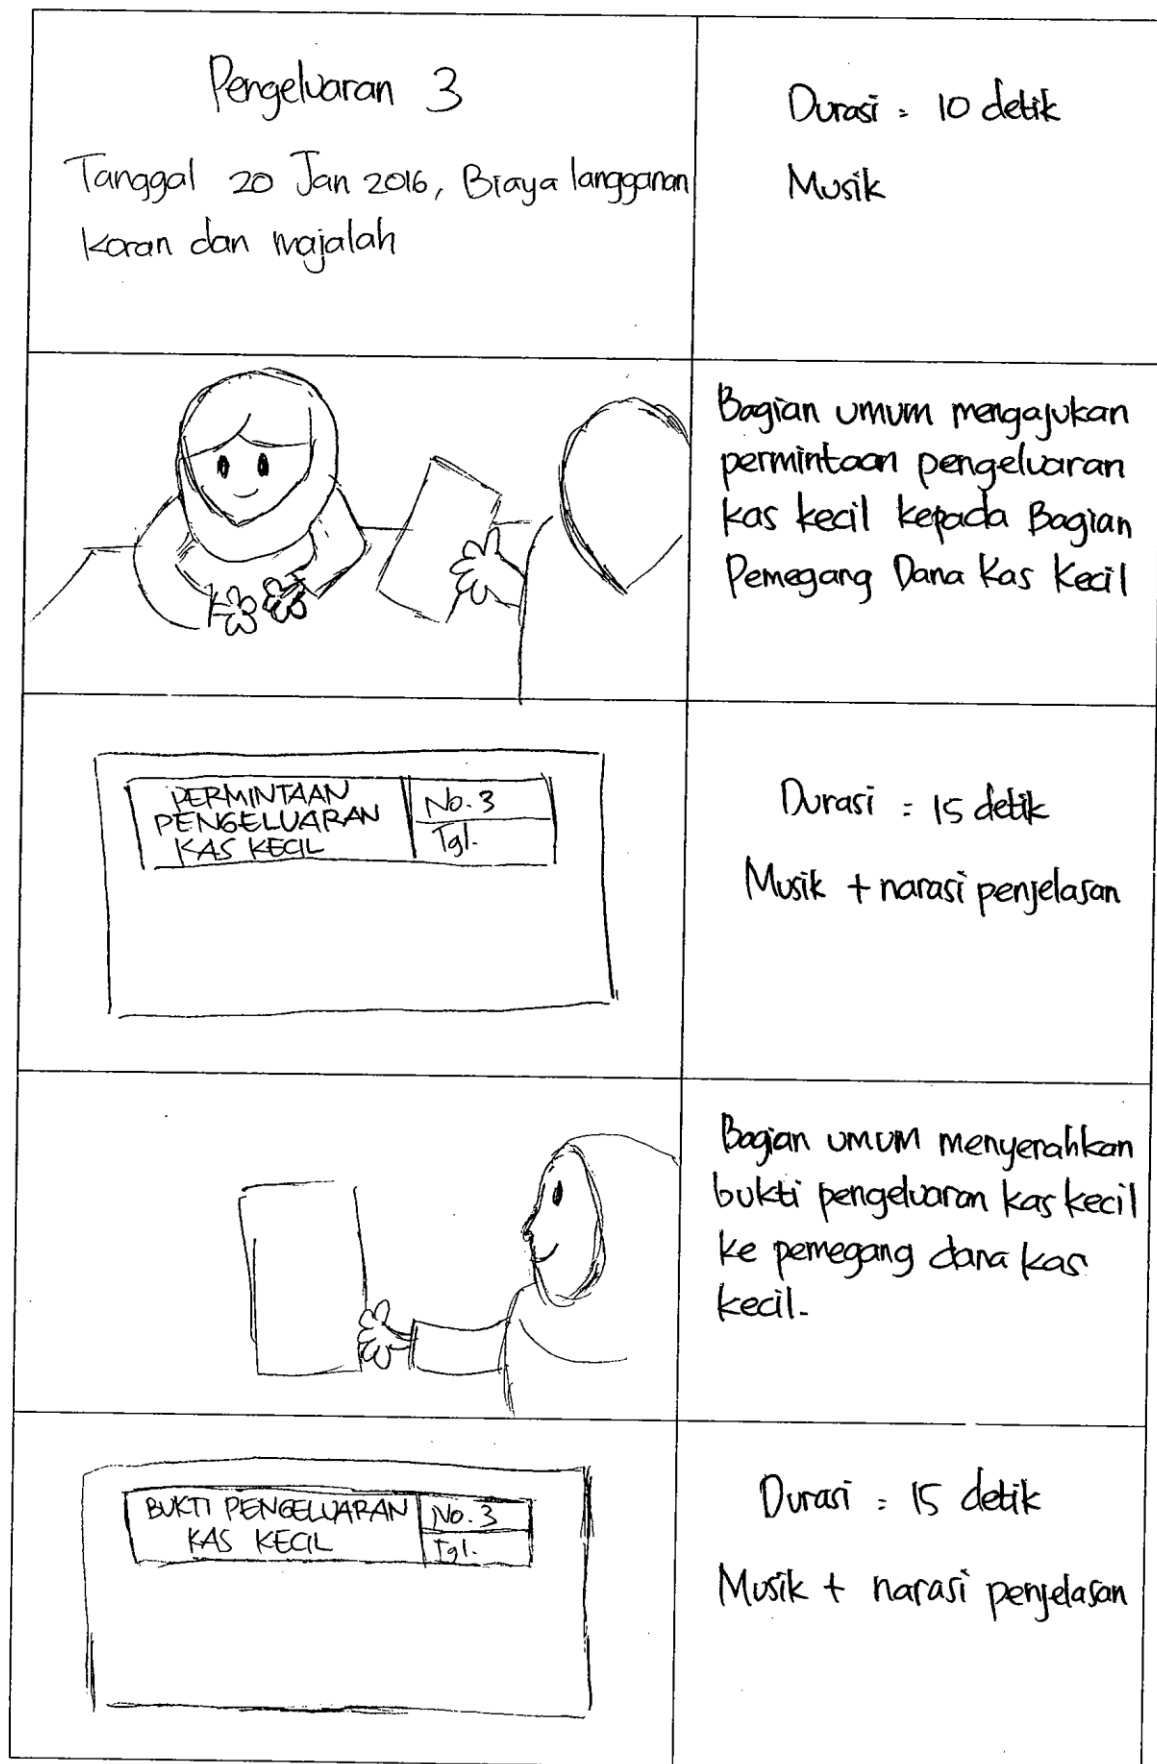 Pengeluaran 3
Tanggal 20 Jan 2016, Biaya langganan
Koran dan majalah
Durasi = 10 detik
Musik
Bagian umum mengajukan
permintaan pengeluaran
kas kecil kepada Bagian
Pemegang Dana Kas Kecil
PERMINTAAN
PENGELUARAN
KAS KECIL
No. 3
Tgl.
Durasi = 15 detik
Musik + narasi penjelasan
Bagian umum menyerahkan
bukti pengeluaran kas kecil
ke pemegang dana kas
kecil.
BUKTI PENGELUARAN
KAS KECIL
No. 3
Tgl.
Durasi = 15 detik
Musik + narasi penjelasan